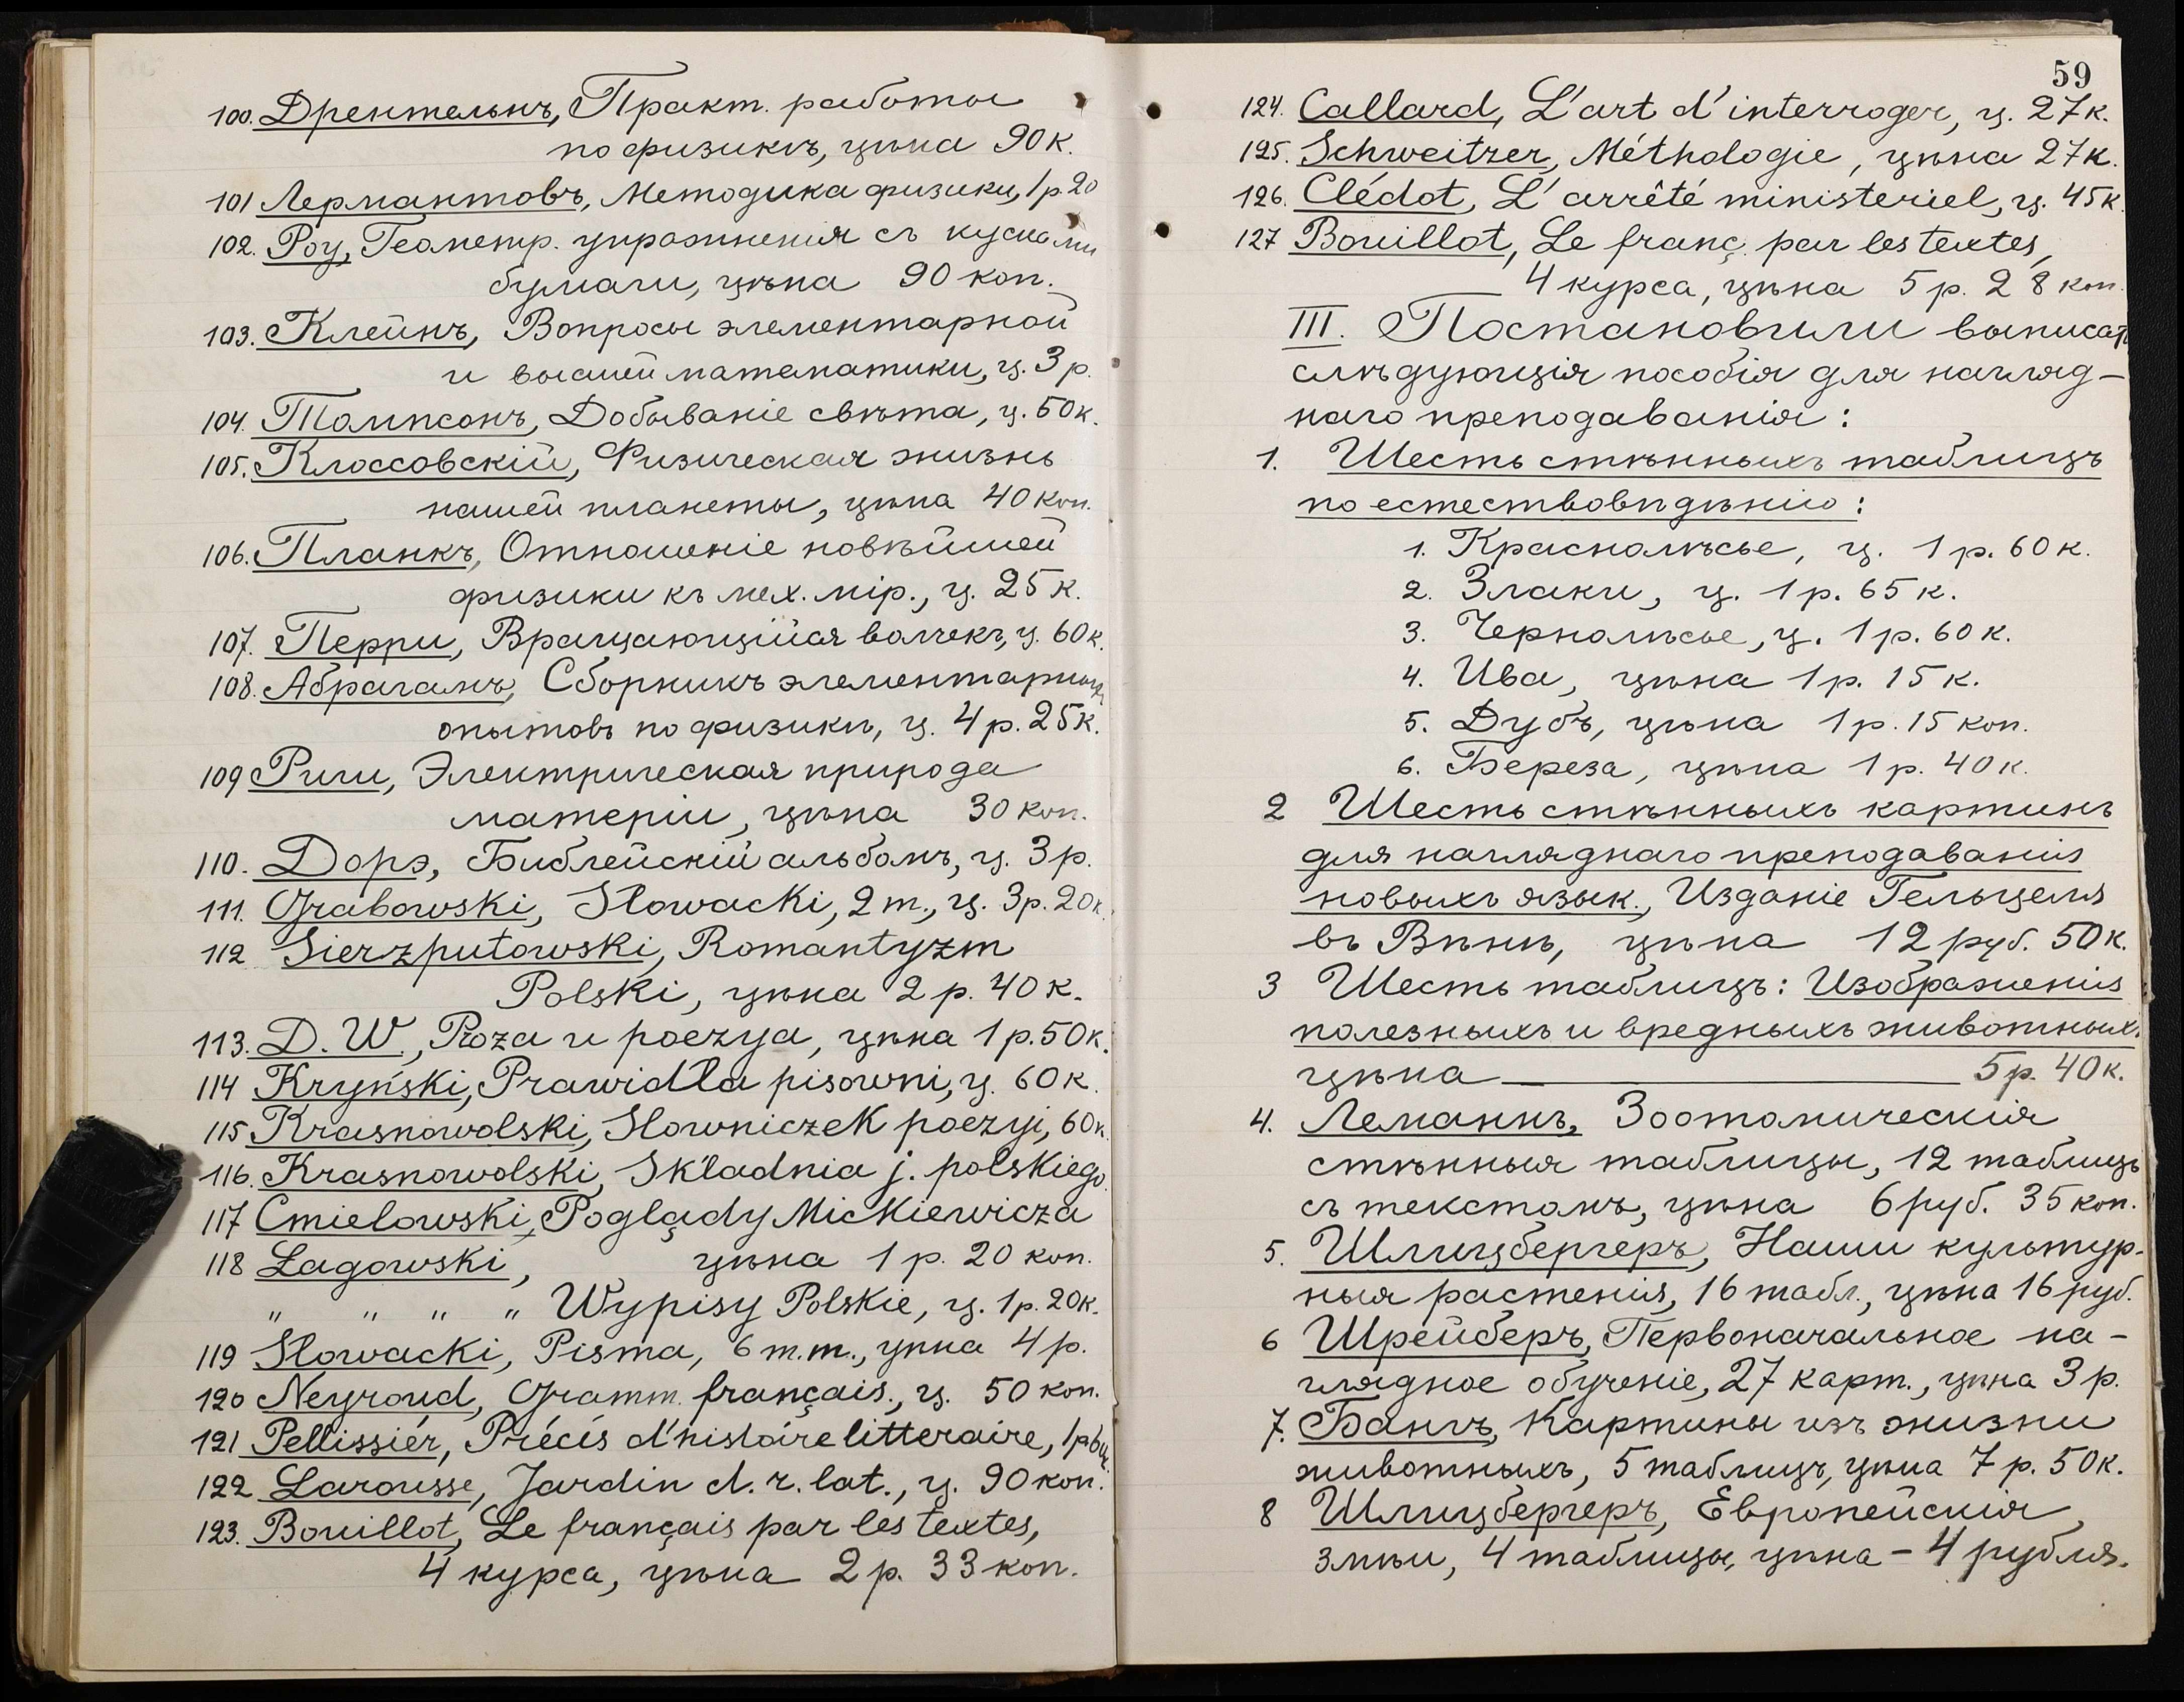 100. Дрентельнъ, Практ. работы
по физикѣ, цѣна 90 к.
101 Лермантовъ, Методика физики, 1 р. 20
102. Роу, Геометр. упражненія съ кусками
бумаги, цѣна 90 коп.
103. Клейнъ, Вопросы элементарной
и высшей математики, ц. 3 р.
104. Томпсонъ, Добываніе свѣта, ц. 50 к.
105. Клоссовскій, Физическая жизнь
нашей планеты, цѣна 40 коп.
106. Планкъ, Отношеніе новѣйшей
физики къ мех. мір., ц. 25 к.
107. Перри, Вращающійся волчекъ, ц. 60 к.
108. Абрагамъ, Сборникъ элементарныхъ
опытовъ по физикѣ, ц. 4 р. 25 к.
109 Риги, Электрическая природа
матеріи, цѣна 30 коп.
110. Дорэ, Библейскій альбомъ, ц. 3 р.
111. Grabowski, Słowacki, 2 т., ц. 3 р. 20 к.
112 Sierzputowski, Romantyzm
Polski, цѣна 2 р. 40 к.
113. D. W., Proza и poezya, цѣна 1 р. 50 к.
114 Kryński, Prawidła pisowni, ц. 60 к.
115 Krasnowolski, Słowniczek poezyi, 60 к.
116. Krasnowolski, Składnia j. polskiego
117 Cmielowski, Poglądy Mickiewicza
118 Lagowski, цѣна 1 р. 20 коп.
" " " " Wypisy Polskie, ц. 1 р. 20 к.
119 Słowacki, Pisma, 6 т.т., цѣна 4 р.
120 Neyroud, Gramm. français., ц. 50 коп.
121 Pellissiér, Précis d'histoire litteraire, 1 р.
122 Larousse, Jardin d. r. lat., ц. 90 коп.
123. Bouillot, Le français par les textes,
4 курса, цѣна 2 р. 33 коп.
59
124. Callard, L'art d'interroger, ц. 27 к.
125. Schweitzer, Méthologie, цѣна 27 к.
126. Clédot, L'arrêté ministeriel, ц. 45 к.
127 Bouillot, Le franç. par les textes,
4 курса, цѣна 5 р. 28 коп.
III. Постановили выписать
слѣдующія пособія для нагляд-
наго преподаванія:
1. Шесть стѣнныхъ таблицъ
по естествовѣдѣнію:
1. Краснолѣсье, ц. 1 р. 60 к.
2. Злаки, ц. 1 р. 65 к.
3. Чернолѣсье, ц. 1 р. 60 к.
4. Ива, цѣна 1 р. 15 к.
5. Дубъ, цѣна 1 р. 15 коп.
6. Береза, цѣна 1 р. 40 к.
2 Шесть стѣнныхъ картинъ
для нагляднаго преподаванія
новыхъ язык., Изданіе Гельцеля
въ Вѣнѣ, цѣна 12 руб. 50 к.
3 Шесть таблицъ: Изображенія
полезныхъ и вредныхъ животныхъ.
цѣна — 5 р. 40 к.
4. Леманнъ, Зоотомическія
стѣнныя таблицы, 12 таблицъ
съ текстомъ, цѣна 6 руб. 35 коп.
5. Шлицбергеръ, Наши культур-
ныя растенія, 16 табл., цѣна 16 руб.
6 Шрейберъ, Первоначальное на-
глядное обученіе, 27 карт., цѣна 3 р.
7. Бангъ, Картины изъ жизни
животныхъ, 5 таблицъ, цѣна 7 р. 50 к.
8 Шлицбергеръ, Европейскія
змѣи, 4 таблицы, цѣна - 4 рубля.